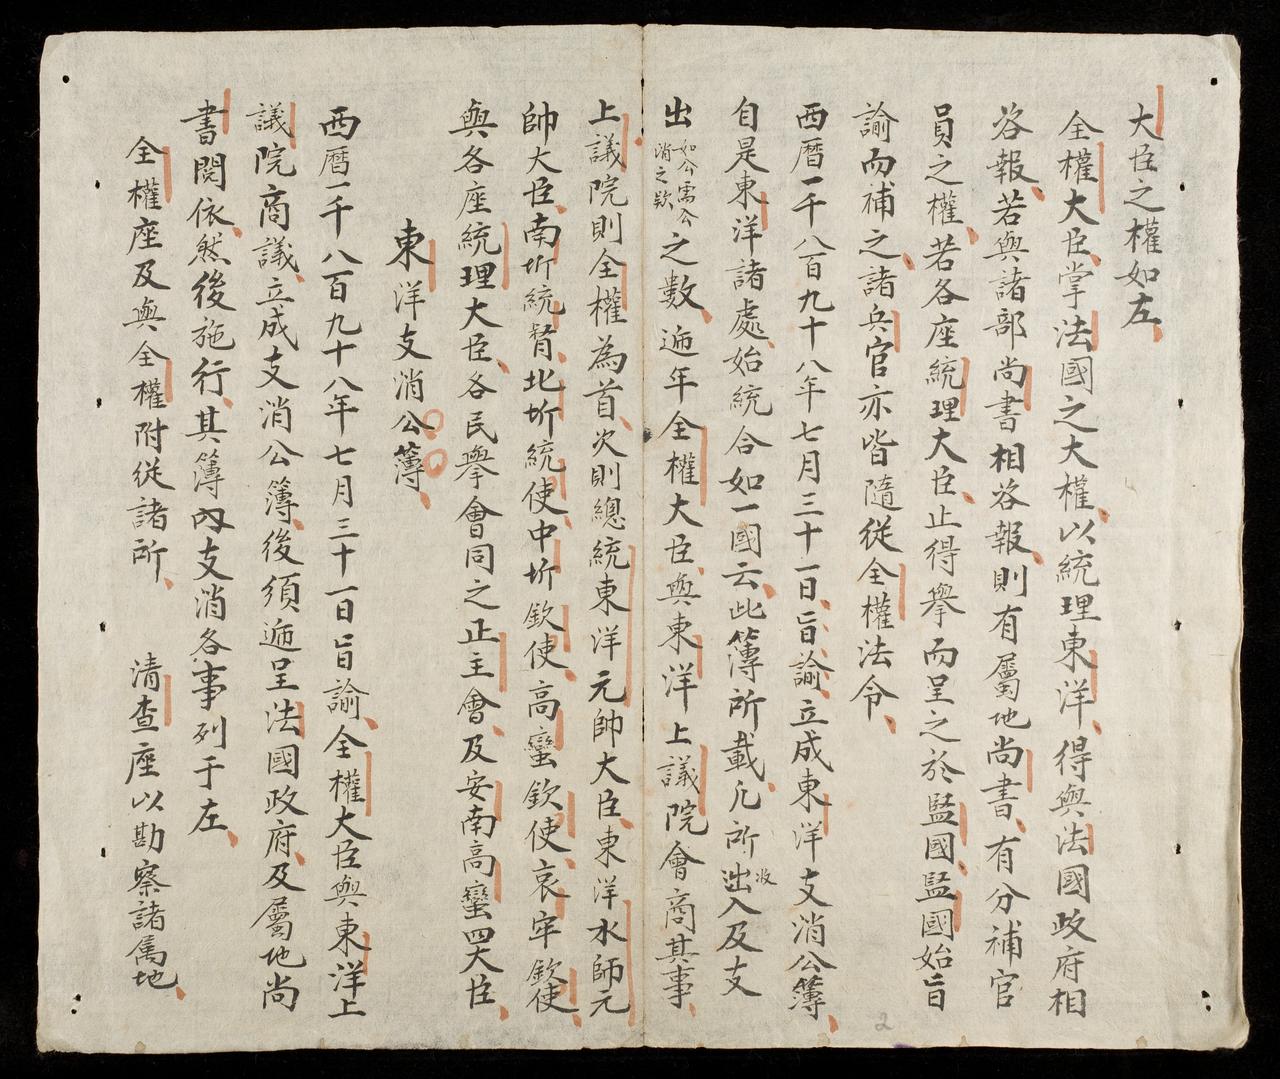 大臣之權如左
全權大臣掌法國之大權以統理東洋得與法國政府相
咨報若與諸部尚書相咨報則有屬地尚書有分補官
員之權若各座統理大臣止得舉而呈之於監國監國始旨
諭而補之諸兵官亦皆隨從全權法令
西曆一千八百九十八年七月三十一日旨諭立成東洋支消公簿
自是東洋諸處始統合如一國云此簿所載凡所出收入及支
出如公需公消之款之數遞年全權大臣與東洋上議院會商其事
上議院則全權為首次則總統東洋元帥大臣東洋水師元
帥大臣南圻統督北圻統使中圻欽使高蠻欽使哀牢欽使
與各座統理大臣各民舉會同之正主會及安南高蠻四大臣
東洋支消公簿
西曆一千八百九十八年七月三十一日旨諭全權大臣與東洋上
議院商議立成支消公簿後須遞呈法國政府及屬地尚
書閱依然後施行其簿內支消各事列于左
全權座及與全權附從諸所 清查座以勘察諸屬地
2